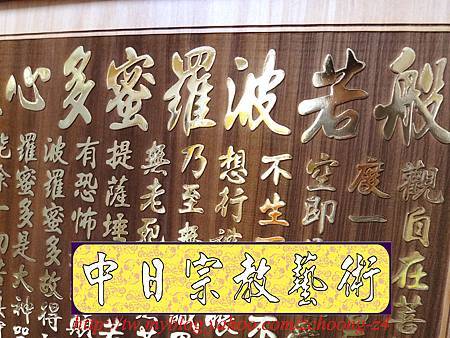 般若波羅蜜多心
觀自在菩
度一
空即
不生
想行
乃至
無老死
提薩埵
有恐怖
波羅蜜多故得
羅蜜多是大神
能除一切
中日宗教藝術